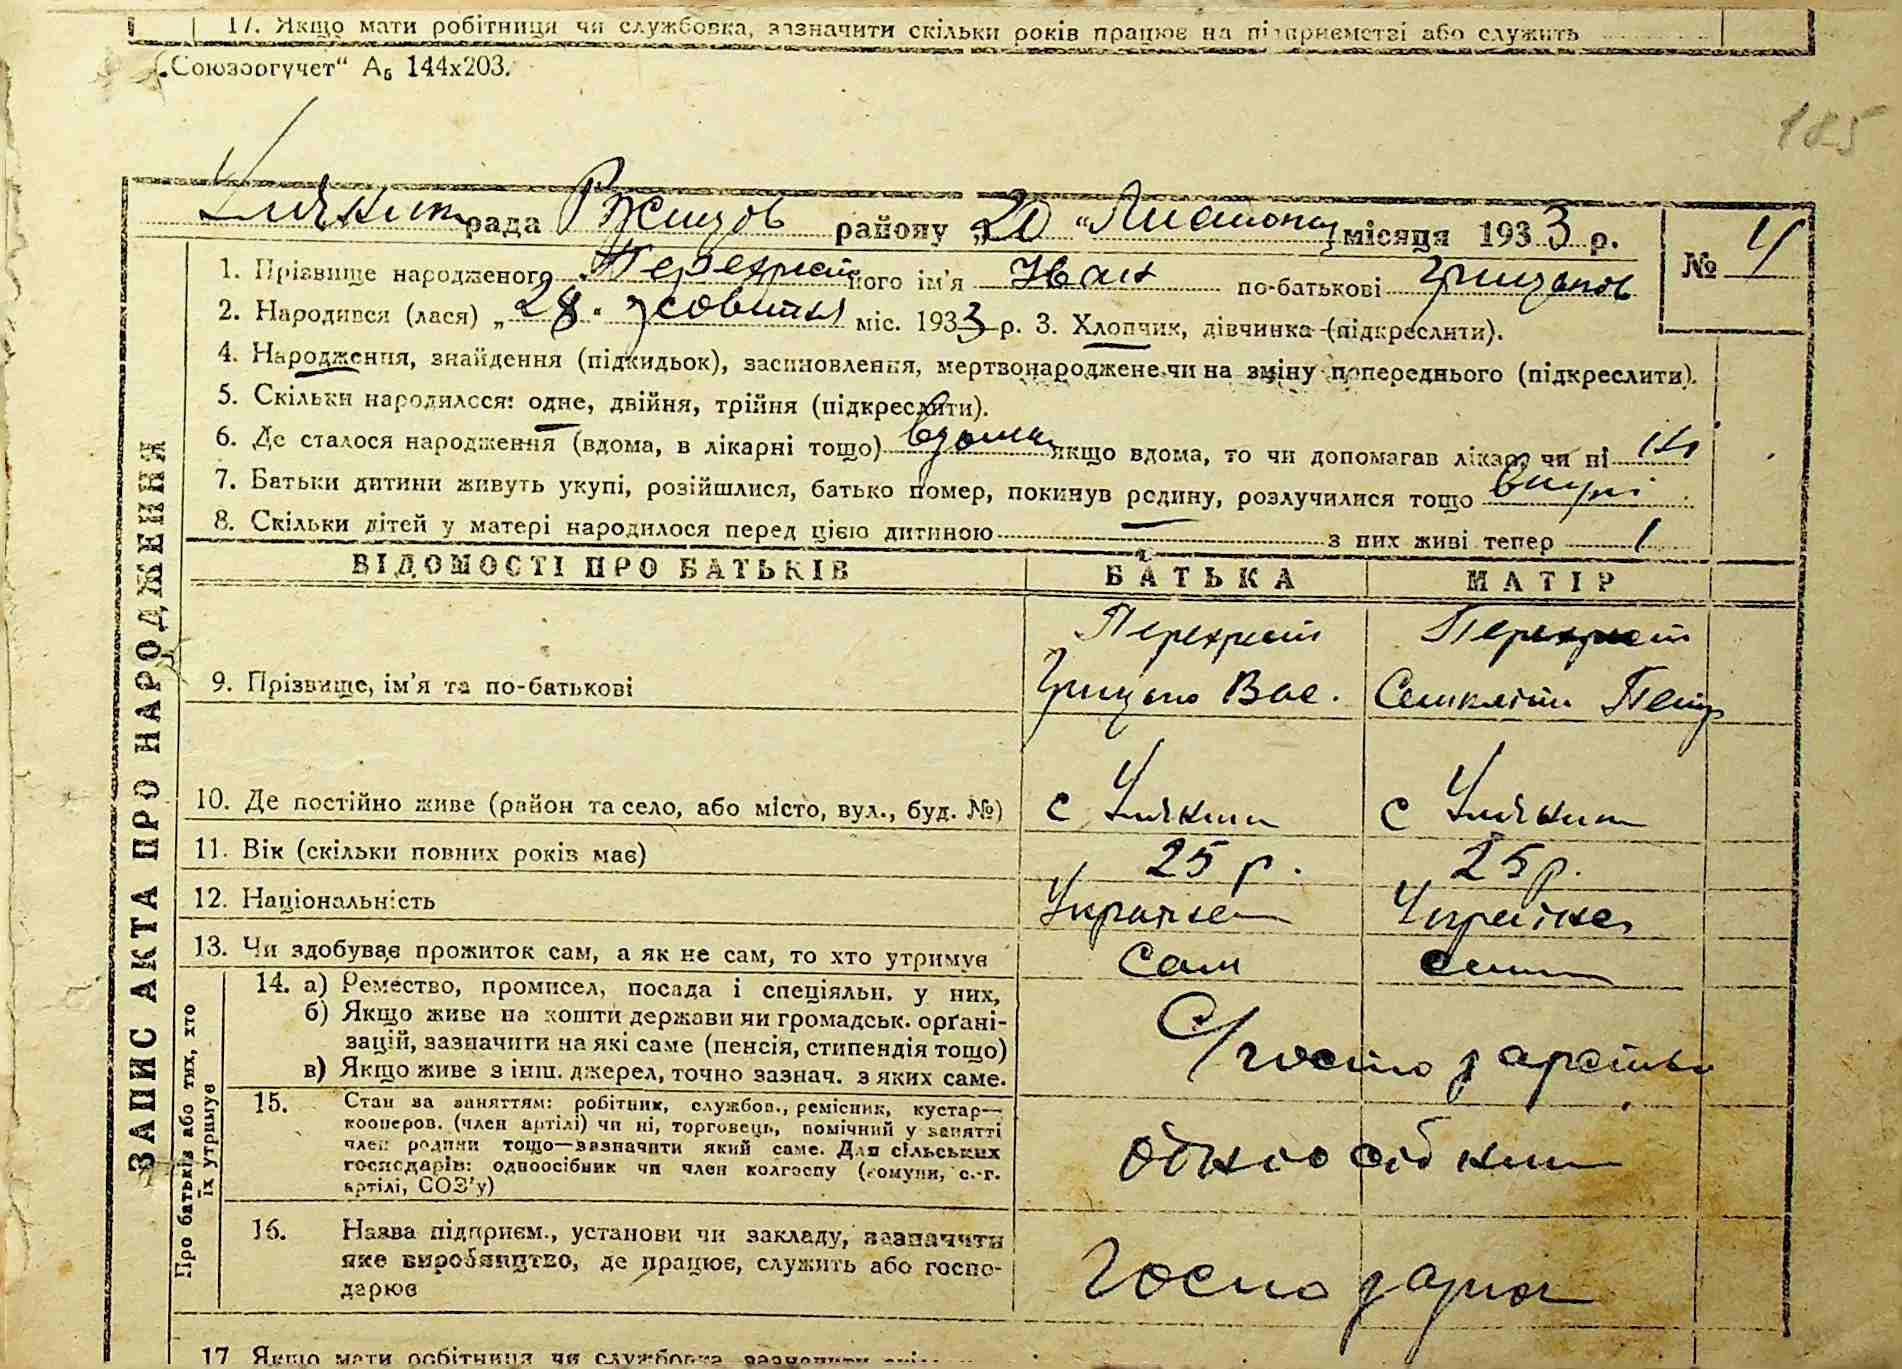 17. Якщо мати робітниця чи службовка, зазначити скільки років працює на підприємстві або служить
„Союзоргучет“ А₅ 144х203.
185
рада Ржищів району „20“ Листопад місяця 1933 р.
№ 4
1. Прізвище народженого Перехрест його ім'я Іван по-батькові Грицьков
2. Народився (лася) „28“ жовтня міс. 1933 р. 3. Хлопчик, дівчинка (підкреслити).
4. Народження, знайдення (підкидьок), засиновлення, мертвонароджене чи на зміну попереднього (підкреслити).
5. Скільки народилося: одне, двійня, трійня (підкреслити).
6. Де сталося народження (вдома, в лікарні тощо) вдома якщо вдома, то чи допомагав лікар чи ні ні
7. Батьки дитини живуть укупі, розійшлися, батько помер, покинув родину, розлучилися тощо вкупі
8. Скільки дітей у матері народилося перед цією дитиною — з них живі тепер 1
ВІДОМОСТІ ПРО БАТЬКІВ БАТЬКА МАТІР
Перехрест Перехрест
9. Прізвище, ім'я та по-батькові Грицько Вас. Петр
10. Де постійно живе (район та село, або місто, вул., буд. №) с с
11. Вік (скільки повних років має) 25 р. 25 р.
12. Національність Українец Українка
13. Чи здобуває прожиток сам, а як не сам, то хто утримує сам сама
14. а) Ремество, промисел, посада і спеціяльн. у них,
б) Якщо живе на кошти держави чи громадськ. орґані-
зацій, зазначити на які саме (пенсія, стипендія тощо)
в) Якщо живе з інш. джерел, точно зазнач. з яких саме.
С/господарство
15. Стан за заняттям: робітник, службов., ремісник, кустар—
кооперов. (член артілі) чи ні, торговець, помічний у занятті
член родини тощо—зазначити який саме. Для сільських
господарів: одноосібник чи член колгоспу (комуни, с.-г.
артілі, СОЗ'у)
одноосібник
16. Назва підприєм., установи чи закладу, зазначити
яке виробництво, де працює, служить або госпо-
дарює
Господарює
17 Якщо мати робітниця чи службовка зазначити
ЗАПИС АКТА ПРО НАРОДЖЕННЯ
Про батьків або тих, хто
їх утримує